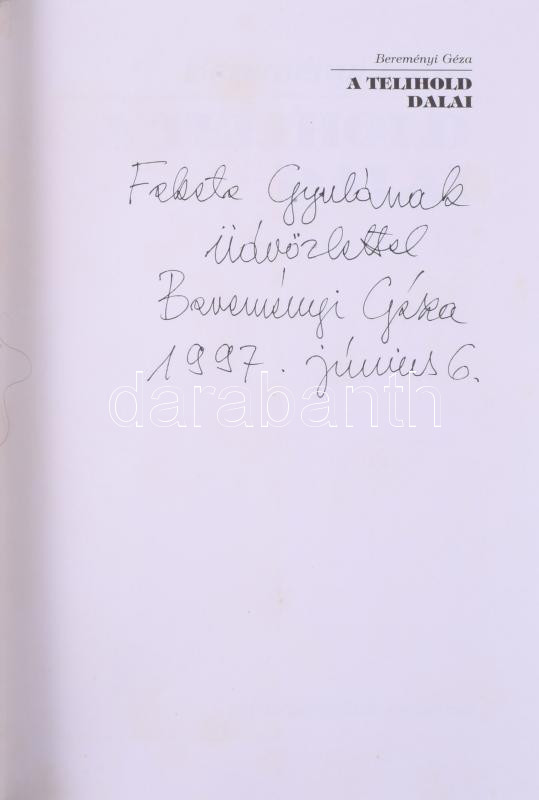 Bereményi Géza
A TELIHOLD
DALAI
Fekete Gyulának
üdvözlettel
Bereményi Géza
1997. június 6.
darabanth